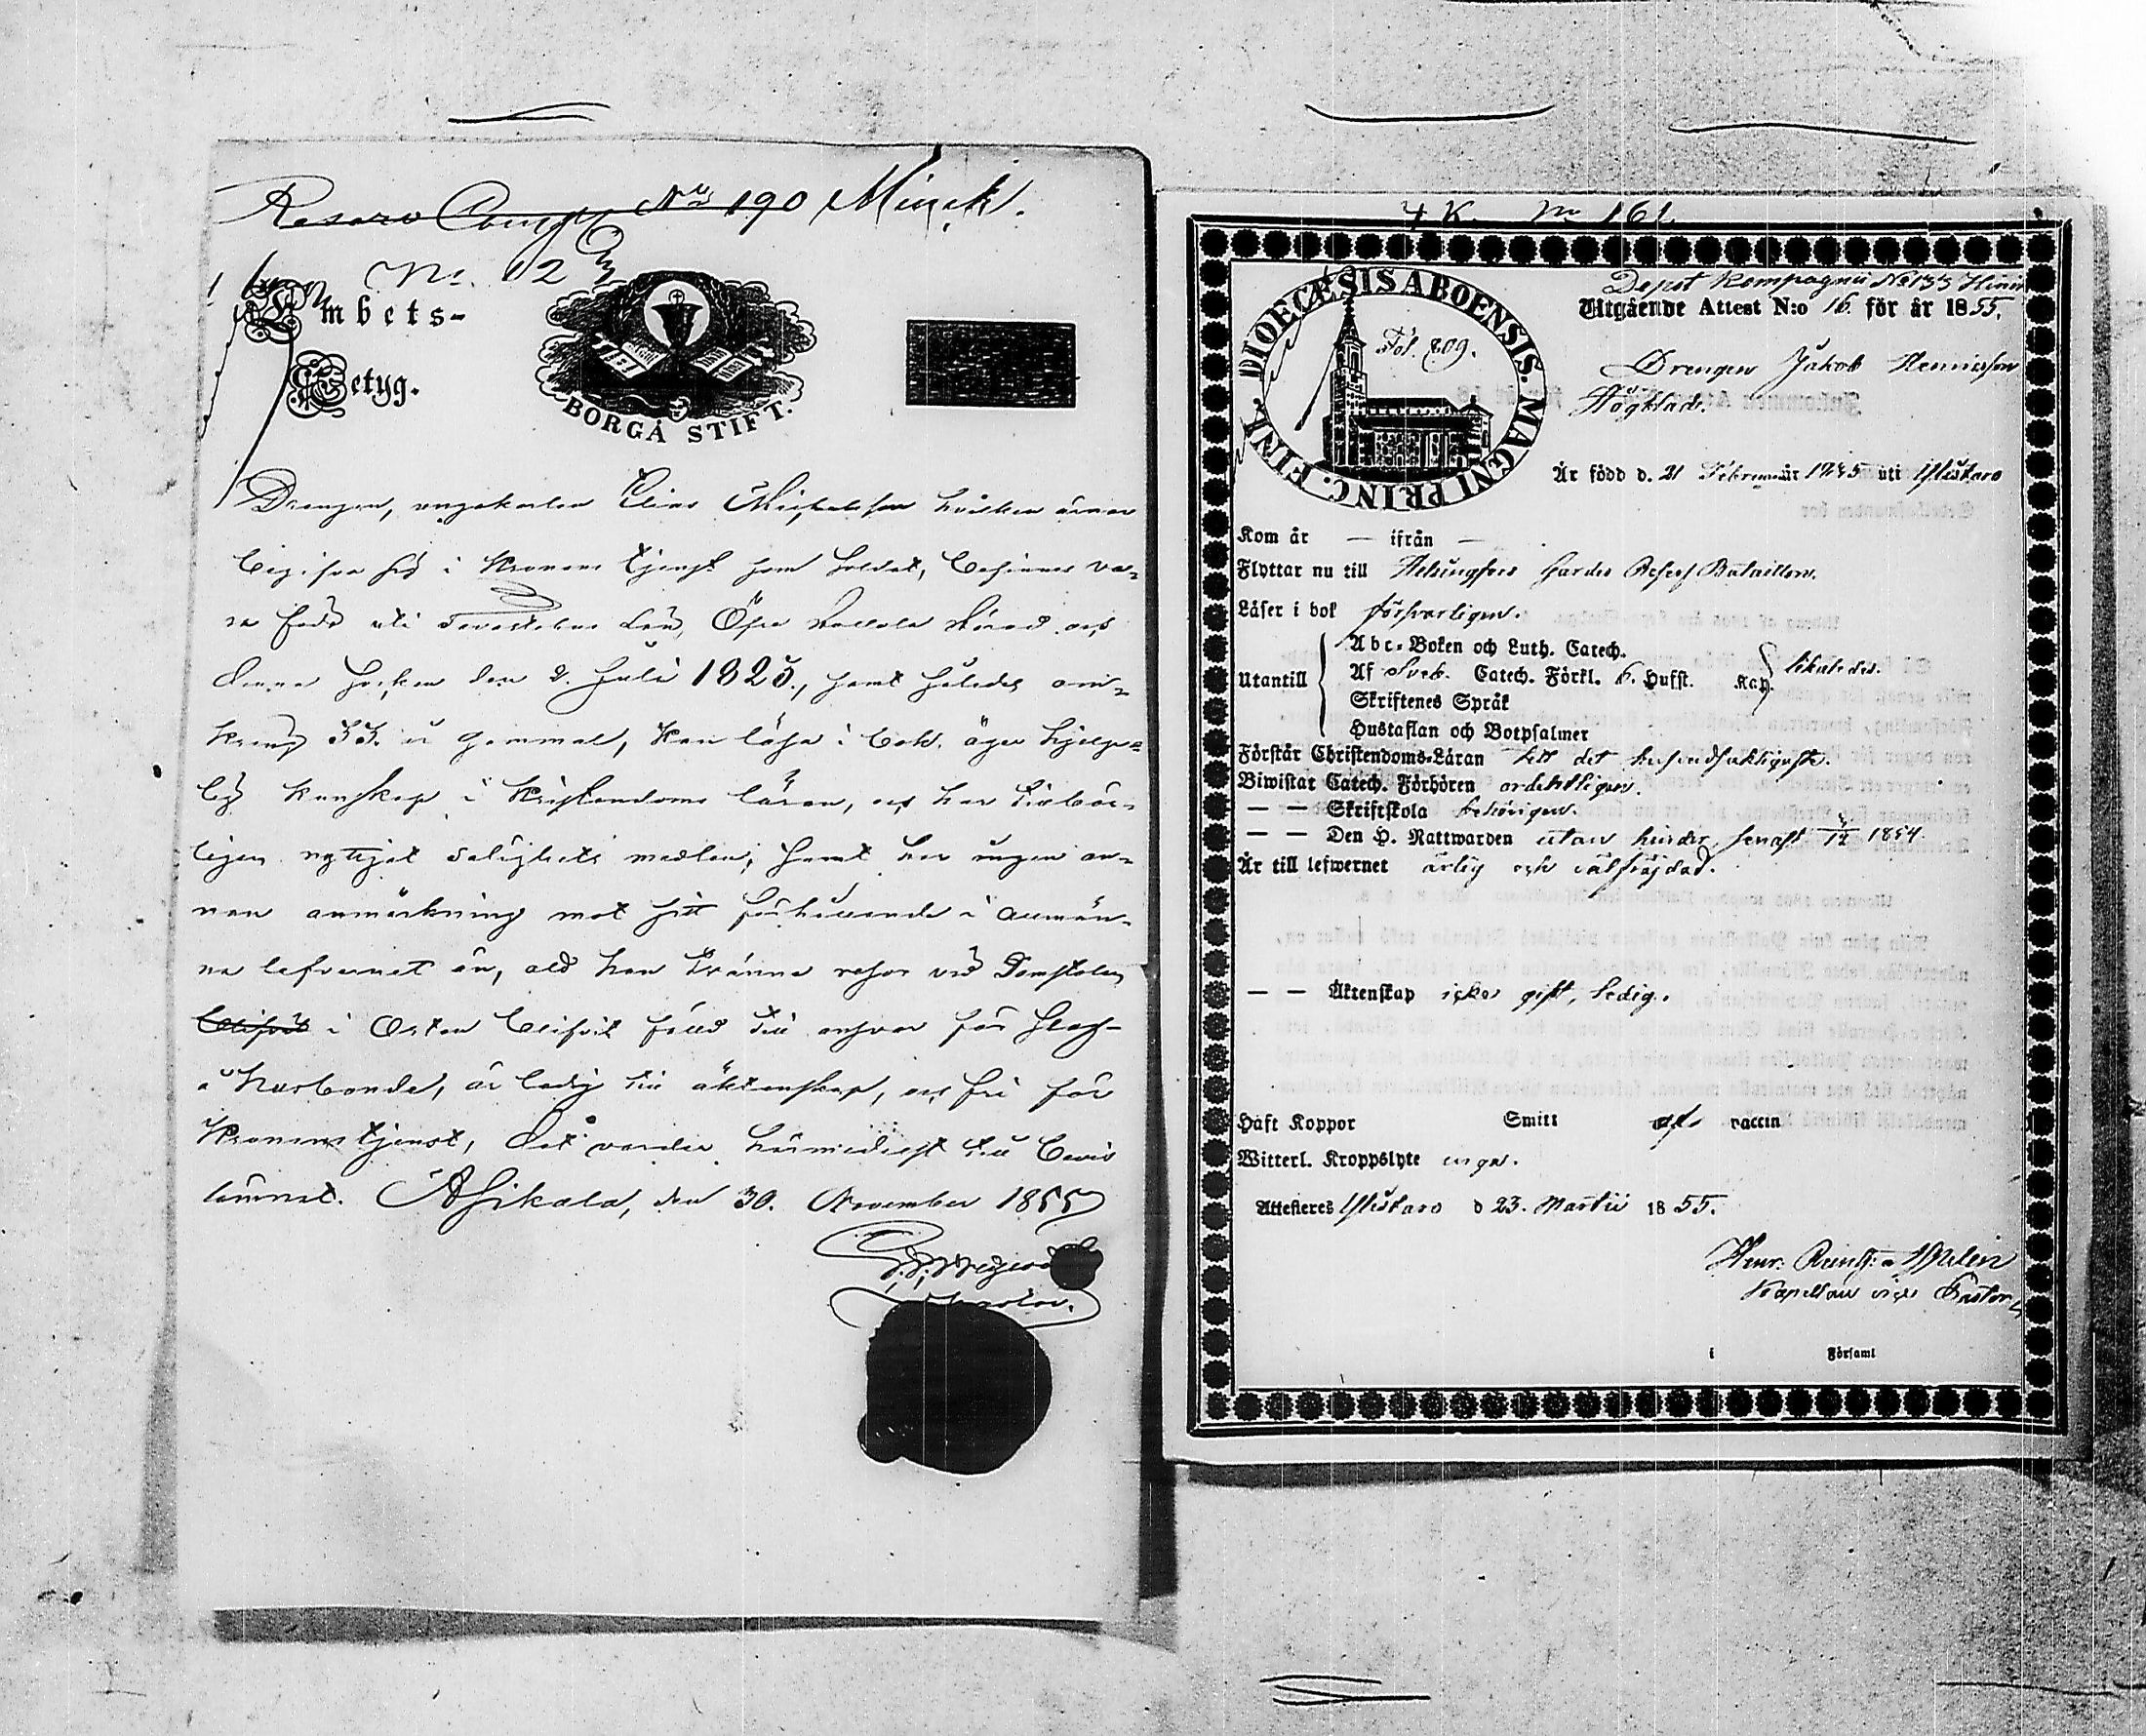 Reserv Comp. No 190 Minck.
No. 12
Ambets-
Betyg.
BORGÅ STIFT.
Drengen, ungakarlen Elias Michelsson hvilken ärnar
begifva sig i Kronans tjenst som Soldat, befinnes va-
ra född uti Tavastehus Län, Hollola Härad och
denna Socken den 2. Juli 1823., samt således om-
kring 33. år gammal, kan läsa i bok, äger hjelp-
lig kunskap i Kristendoms läran, och har
ligen nyttjat salighets medlen; samt har ingen an-
nan anmärkning mot sitt förhållande i allmän-
na lefvernet än, att han tvänne resor vid Domstolen
blifvit i Asikkala blifvit fälld till ansvar för
Husbonde, är ledig till äktenskap, och fri för
Kronans tjenst, Det varder härmedelst till bevis
lämnat. Asikala, den 30. November 1855
4 K. No 161.
Depot Kompagnie No 133
DIOECÆSIS ABOENSIS. MAGNI PRINC. FINL.
Fol. 809.
Utgående Attest N:o 16. för år 1855.
Drengen Jakob Henriksson
Högblad.
Är född d. 21 Februarii uti Ylistaro
Kom år — ifrån —
Flyttar nu till Helsingfors Gardes Reserf Bataillon.
Läser i bok försvarligen.
Utantill
Abc-Boken och Luth. Catech.
Af Sveb. Catech. Förkl. 6. Hufst. Kap. likaledes.
Skriftenes Språk
Hustaflan och Botpsalmer
Förstår Christendoms-Läran till det hufvudsakligaste.
Biwistat Catech. Förhören ordentligen.
— — Skriftskola behörigen.
— — Den H. Nattwarden utan hinder, senast 1854.
Är till lefwernet ärlig och välfräjdad.
— — Äktenskap icke gift, ledig.
Haft Koppor Smitt af vaccin
Witterl. Kroppslyte inga.
Attesteres Ylistaro d 23. Martii 1855.
Kapellan vice Pastor
i Församl